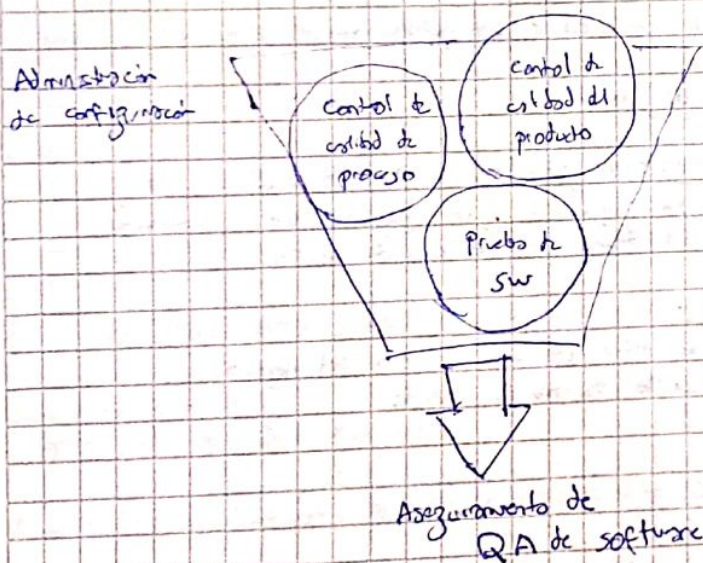 Administración
de configuración
Control de
calidad de
proceso
Control de
calidad del
producto
Prueba de
SW
Aseguramiento de
QA de software